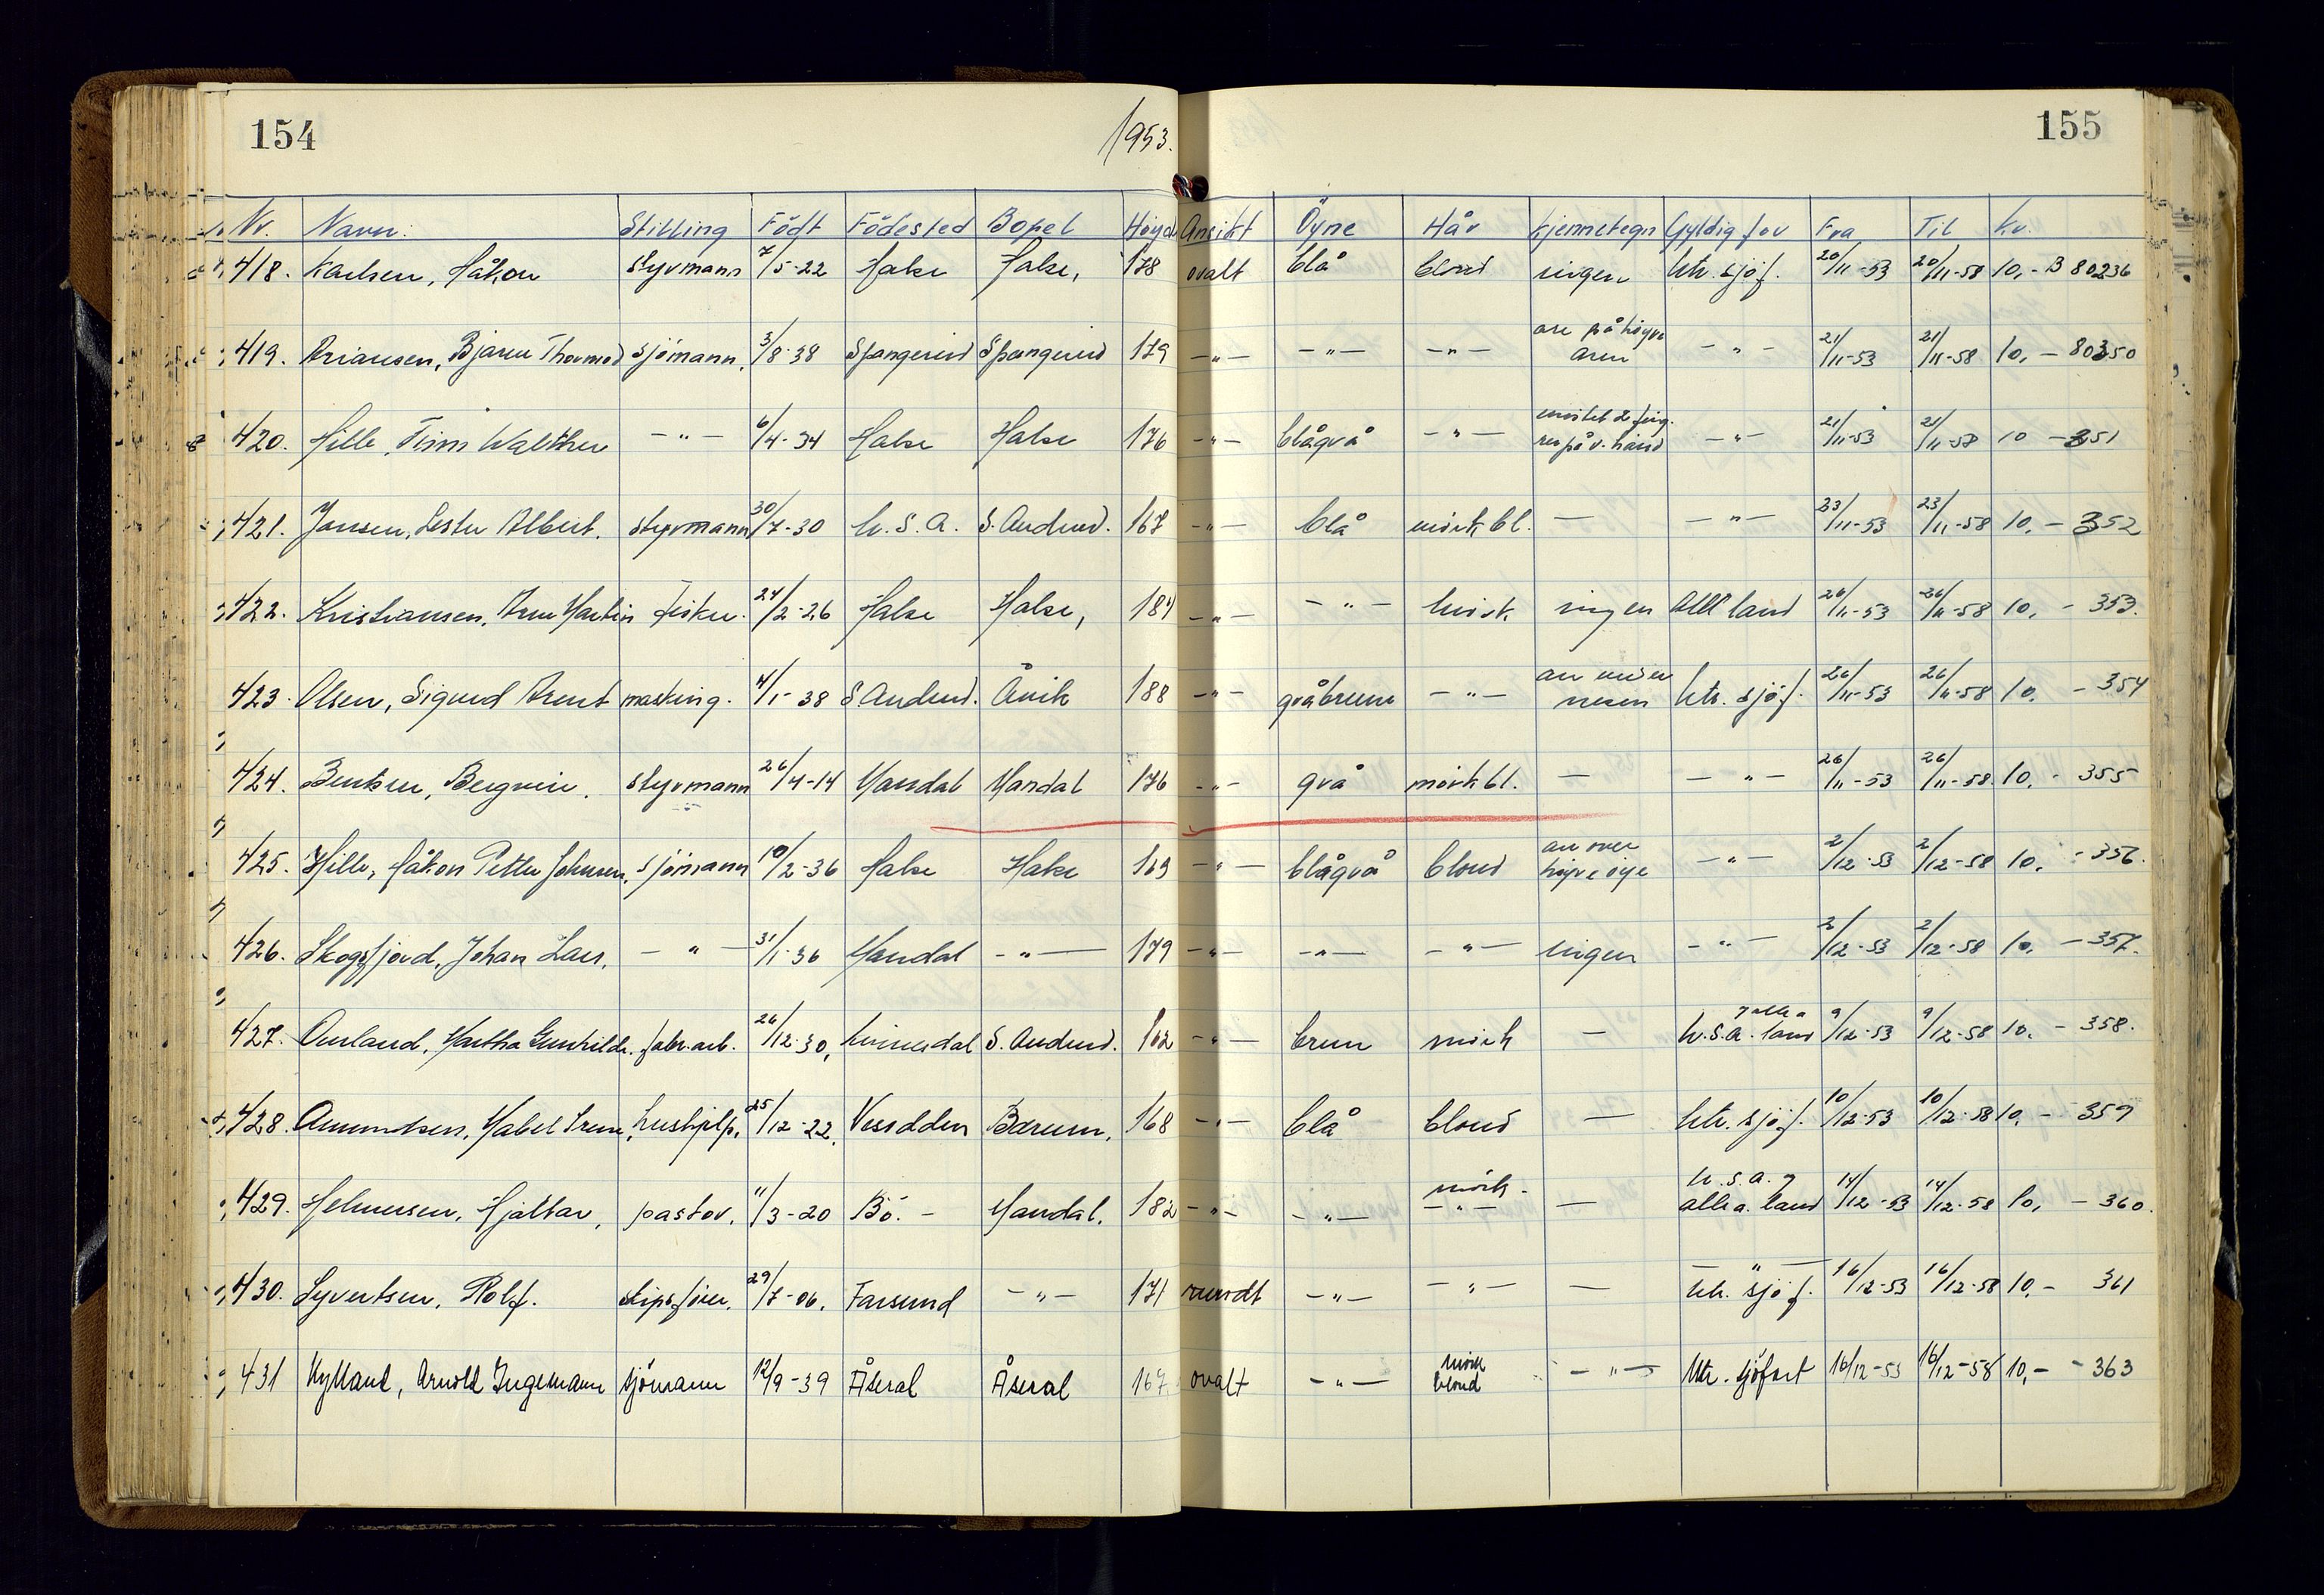 154
1953.
155
Nr. Navn: Stilling Födt Födested Bopel Höyde Ansikt Öyne Hår Kjennetegn Gyldig for Fra Til Kr.
418. Karlsen, Håkon styrmann 7/5-22 Halse Halse, 178 ovalt blå blond ingen utr. sjöf. 20/11-53 20/11-58 10,- B 80236
arr på höyre
419. Arianesen, Bjarne Thormod sjömann, 3/8-38 Spangereid Spangereid 179 -"- -"- -"- arm -"- 21/11-53 21/11-58 10,- 80350
mistet 2 fing.
420. Hille, Finn Walther -"- 6/4-34 Halse Halse 176 -"- blågrå -"- rer på v. hånd -"- 21/11-53 21/11-58 10 - 351
421. Jansen, Lester Albert. styrmann 30/7-30 U.S.A. S. Audned. 167 -"- blå mörk bl. — -"- 23/11-53 23/11-58 10,- 352
422. Kristiansen, Arne Martin fisker. 24/2-26 Halse Halse, 184 -"- -"- mörk ingen alle land 26/11-53 26/11-58 10,- 353.
arr under
423. Olsen, Sigurd Arent masking. 4/1-38 S. Audned. Åvik 188 -"- gråbrune -"- nesen utr. sjöf. 26/11-53 26/11-58 10. - 354
424. Bentsen, Bergvin. styrmann 26/4-14 Mandal Mandal 176 -"- grå mörk bl. — -"- 26/11-53 26/11-58 10. - 355
arr over
425. Hille, Håkon Petter Johnsen, sjömann 10/2-36 Halse Halse 169 -"- blågrå blond höyre öye -"- 2/12-53 2/12-58 10, - 356.
426. Skogsfjord, Johan Lars. -"- 31/1-36 Mandal -"- 179 -"- -"- -"- ingen -"- 2/12-53 2/12-58 10, - 357.
427. Aurland, Martha Gunhilde. fabr. arb. 26/12-30, Kvinesdal S. Audned. 162 -"- brun mörk — U.S.A. land 9/12-53 9/12-58 10. - 358.
428. Amundsen, Mabel Irene, hushjelp, 25/12-22, Bærum, 168 -"- blå blond — utr. sjöf. 10/12-53 10/12-58 10, - 359
mörk - U.S.A. &
429. Helmersen, Hjalmar, pastor. 11/3-20 Bö. - Mandal. 182 -"- -"- -"- — alle a. land 14/12-53 14/12-58 10, - 360.
-"-
430. Syvertsen, Rolf. skipsförer, 29/7-06. Farsund -"- 171 rundt -"- -"- — utr. sjöf. 16/12-53 16/12-58 10,- 361
mörk
431 Kylland, Arnold Ingemann sjömann 12/9-39 Åseral Åseral 167 ovalt -"- blond -"- Utr. sjöfart 16/12-53 16/12-58 10,- - 363